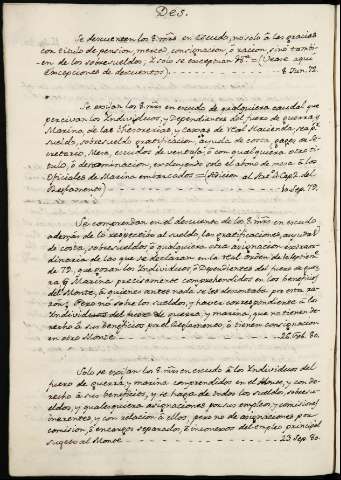 Des.
Se descuenten los 8 mrs en escudo, no solo à las gracias
con titulo de pension, merced, consignacion, ò racion, sino tambi-
en de los sobresueldos, y solo se exceptuan = (Vease aqui
Excepciones de descuentos) 8 Jun. 72.
Se exijan los 8 mrs en escudo de qualquiera caudal que
percivan los Individuos, y Dependientes del fuero de guerra y
Marina, de las Thesorerias, y Caxas de real Hacienda, sea pr.
sueldo, sobresueldo gratificacion, ayuda de costa, gages de Se-
cretario, Mesa, escudos de ventaja, ò con qualquiera otro ti-
tulo, ò denominacion, excluyendo solo el abono de mesa à los
Oficiales de Marina embarcados = (Adicion al Cap. del
Reglamento) Sep. 79.
Se comprendan en el descuento de los 8 mrs en escudo
además de lo respectivo al sueldo, las gratificaciones, ayudas
de costa, sobresueldos ò qualquiera otra asignacion extraor-
dinaria de las que se declaran en la real orden de
de 79. que gozan los Individuos, ò Dependientes del fuero de gue-
rra y Marina precisamente comprehendidos en los beneficios
del Monte, à quienes antes nada se les descontaba por esta ra-
zon; Pero no sobre los sueldos, y haver correspondiente à los
Individuos del fuero de guerra, y marina, que no tienen de-
recho à sus beneficios por el Reglamento, ò tienen consignacion
en otro Monte 26. Feb. 80.
Solo se exijan los 8 mrs en escudo à los Individuos del
fuero de guerra, y marina comprendidos en el Monte, y con de-
recho à sus beneficios, y se haga de todos los sueldos, sobresu-
eldos, y qualesquiera asignaciones por sus empleos, y comisiones
inherentes, y con relacion à ellos; pero no de asignaciones por
comision, ò encargos separados, è inconexos del empleo principal
sugeto al Monte 23. Sep. 80.